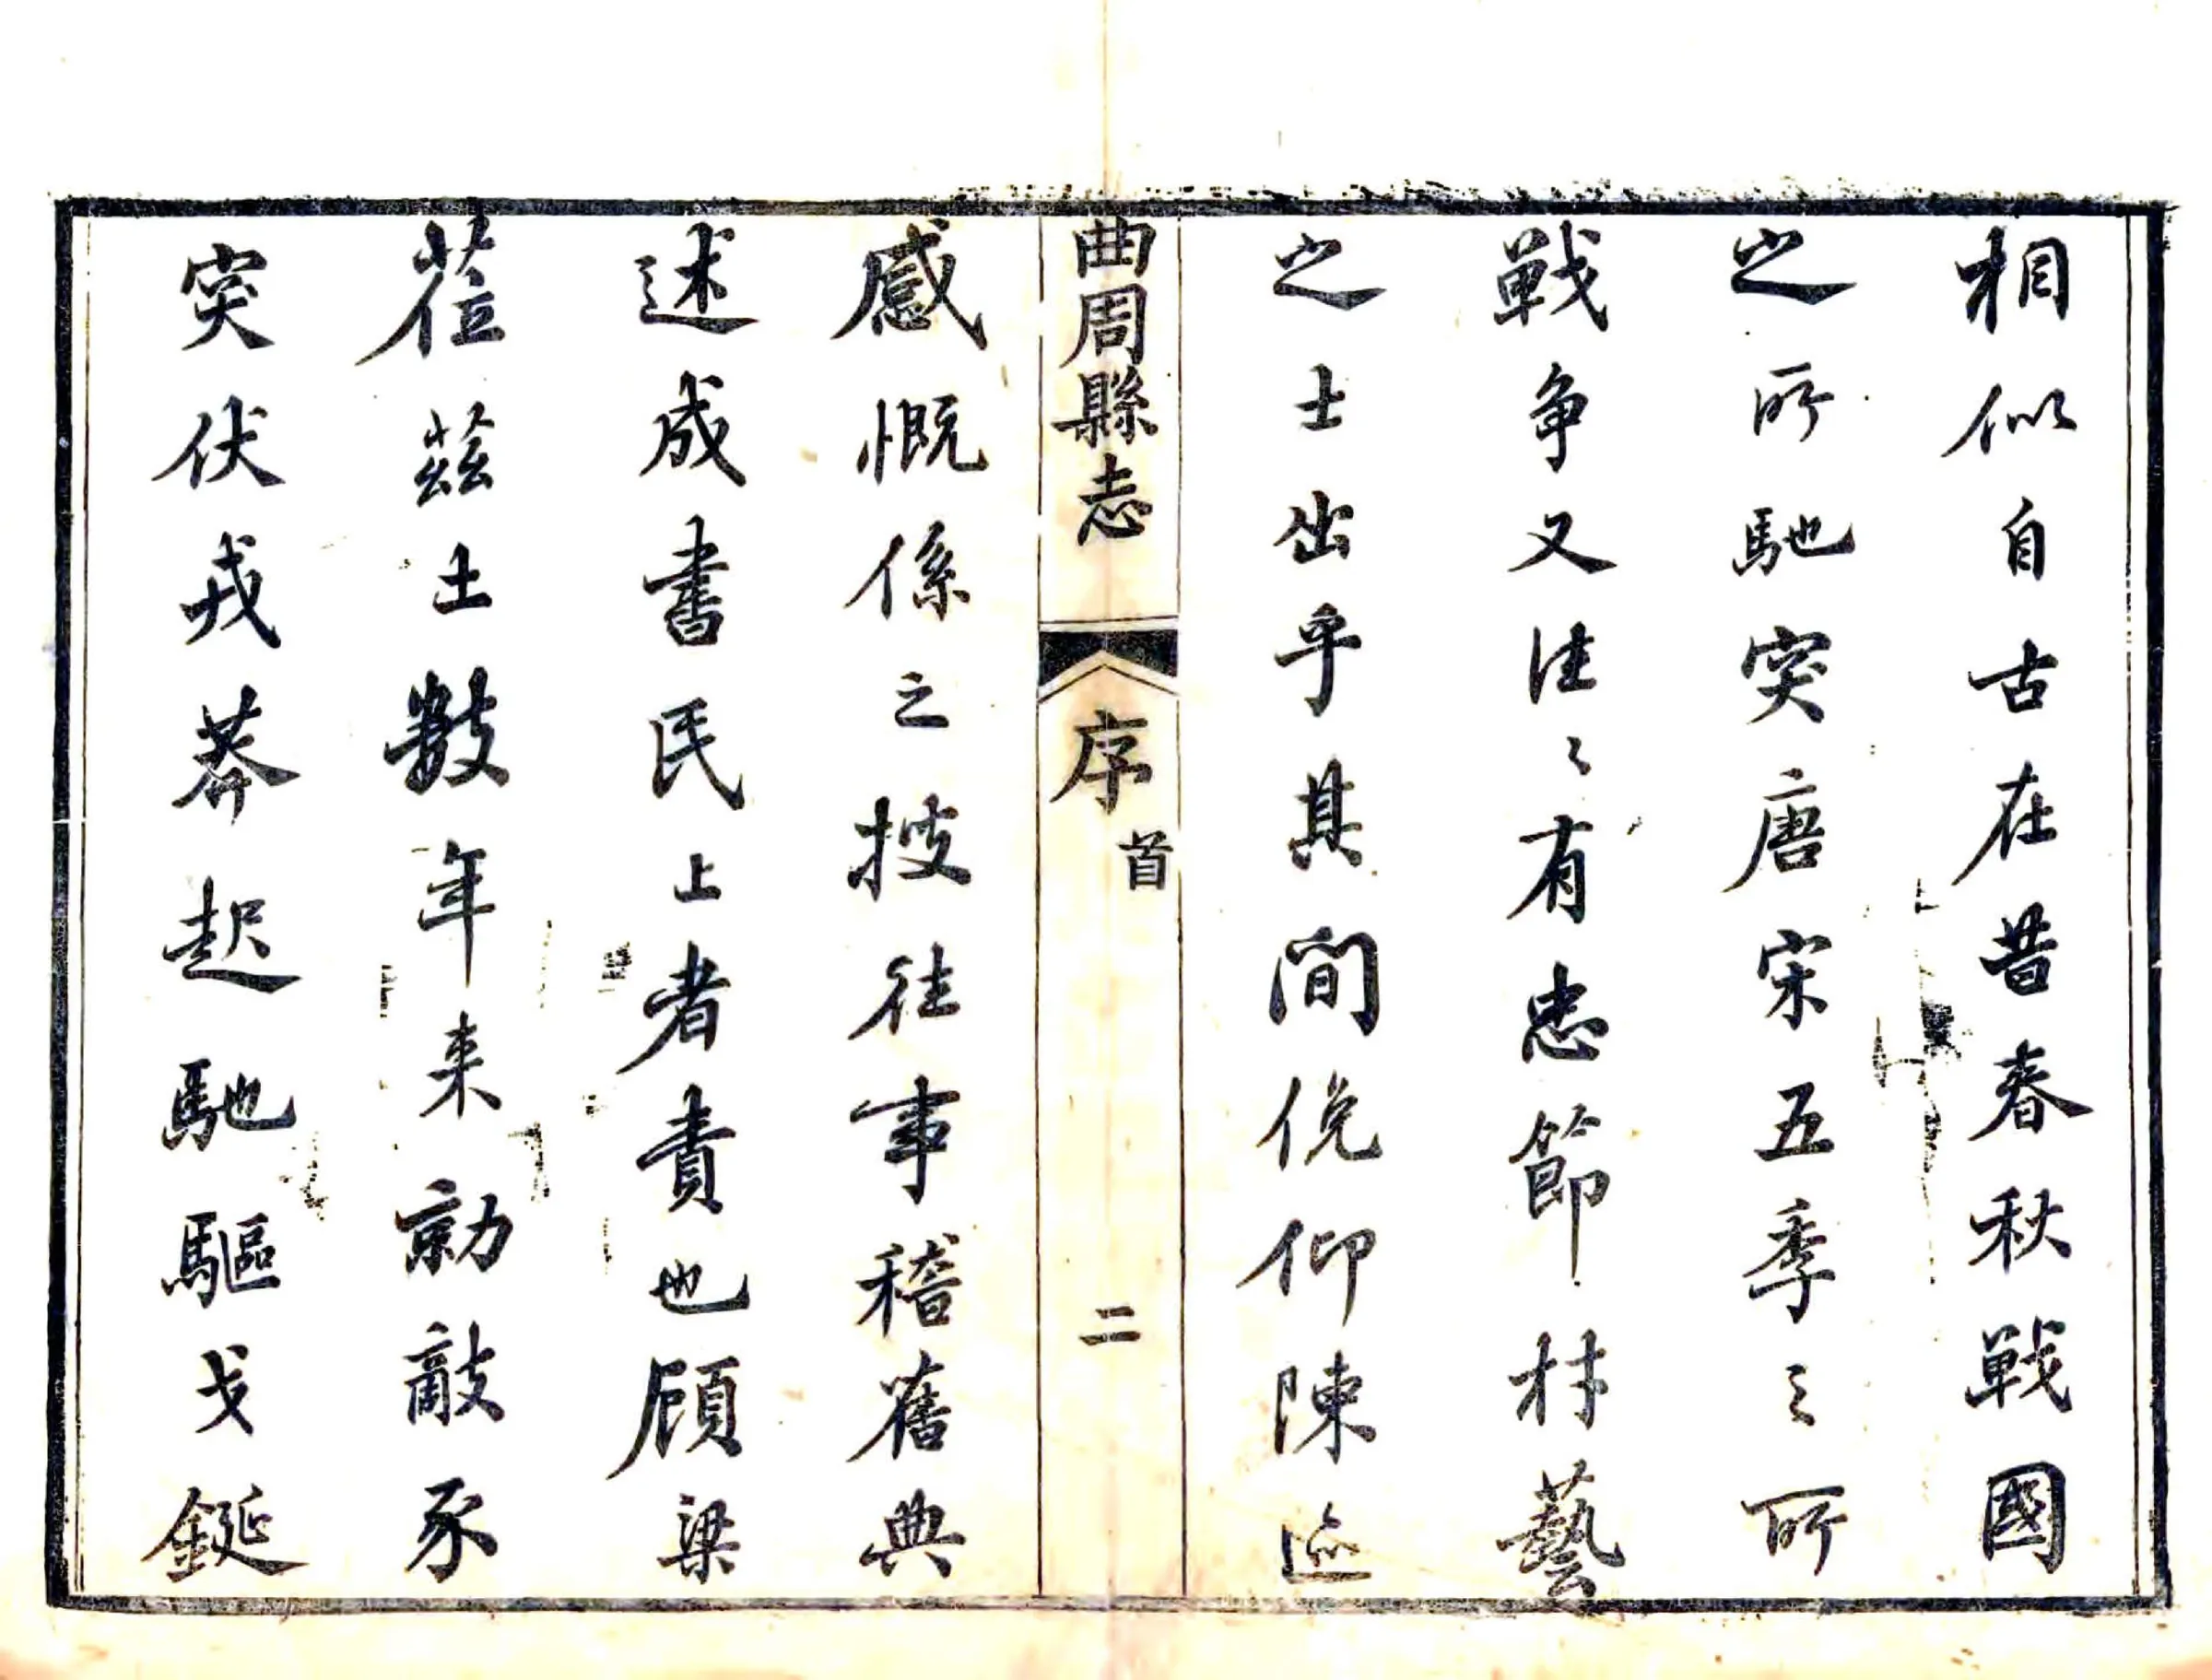 相似自古在昔春秋戰國
之所馳突唐宋五季之所
戰爭又往々有忠節材藝
之士出乎其間俛仰陳迹
曲周縣志
序
首
二
感慨係之搜往事稽舊典
述成書民上者責也顧梁
蒞茲土數年來勍敵豕
突伏戎莽起馳驅戈鋋